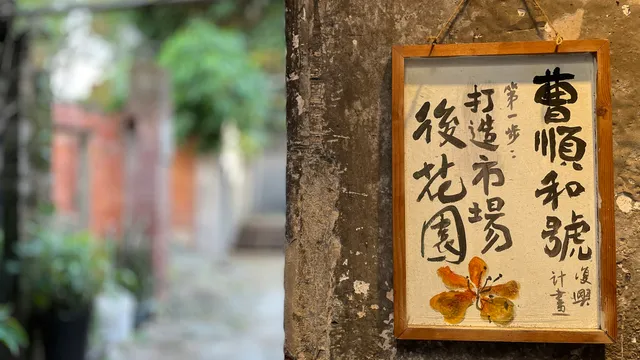 曹順和號
復興
計畫
第一步：
打造市場
後花園